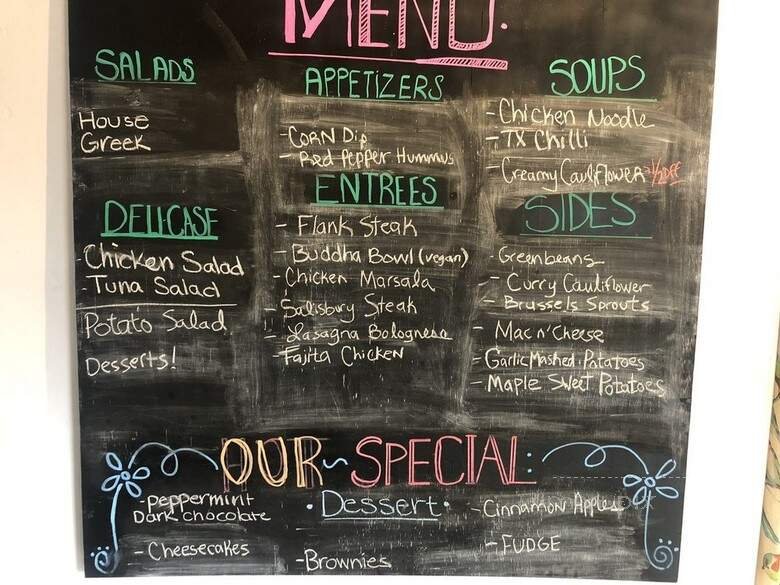 MENU.
SALADS
House
Greek
DELI-CASE
- Chicken Salad
Tuna Salad
Potato Salad
Desserts!
APPETIZERS
- CORN Dip
- Red Pepper Hummus
ENTREES
- Flank Steak
- Buddha Bowl (vegan)
- Chicken Marsala
- Salisbury Steak
- Lasagna Bolognesa
- Fajita Chicken
SOUPS
- Chicken Noodle
- TX Chilli
- Creamy Cauliflower 1/2 OFF
SIDES
- Greenbeans
- Curry Cauliflower
- Brussels Sprouts
- Mac n' Cheese
- Garlic Mashed Potatoes
- Maple Sweet Potatoes
OUR ~ SPECIAL:
• Dessert •
- peppermint
Dark chocolate
- Cheesecakes
- Brownies
- Cinnamon Apples
- FUDGE